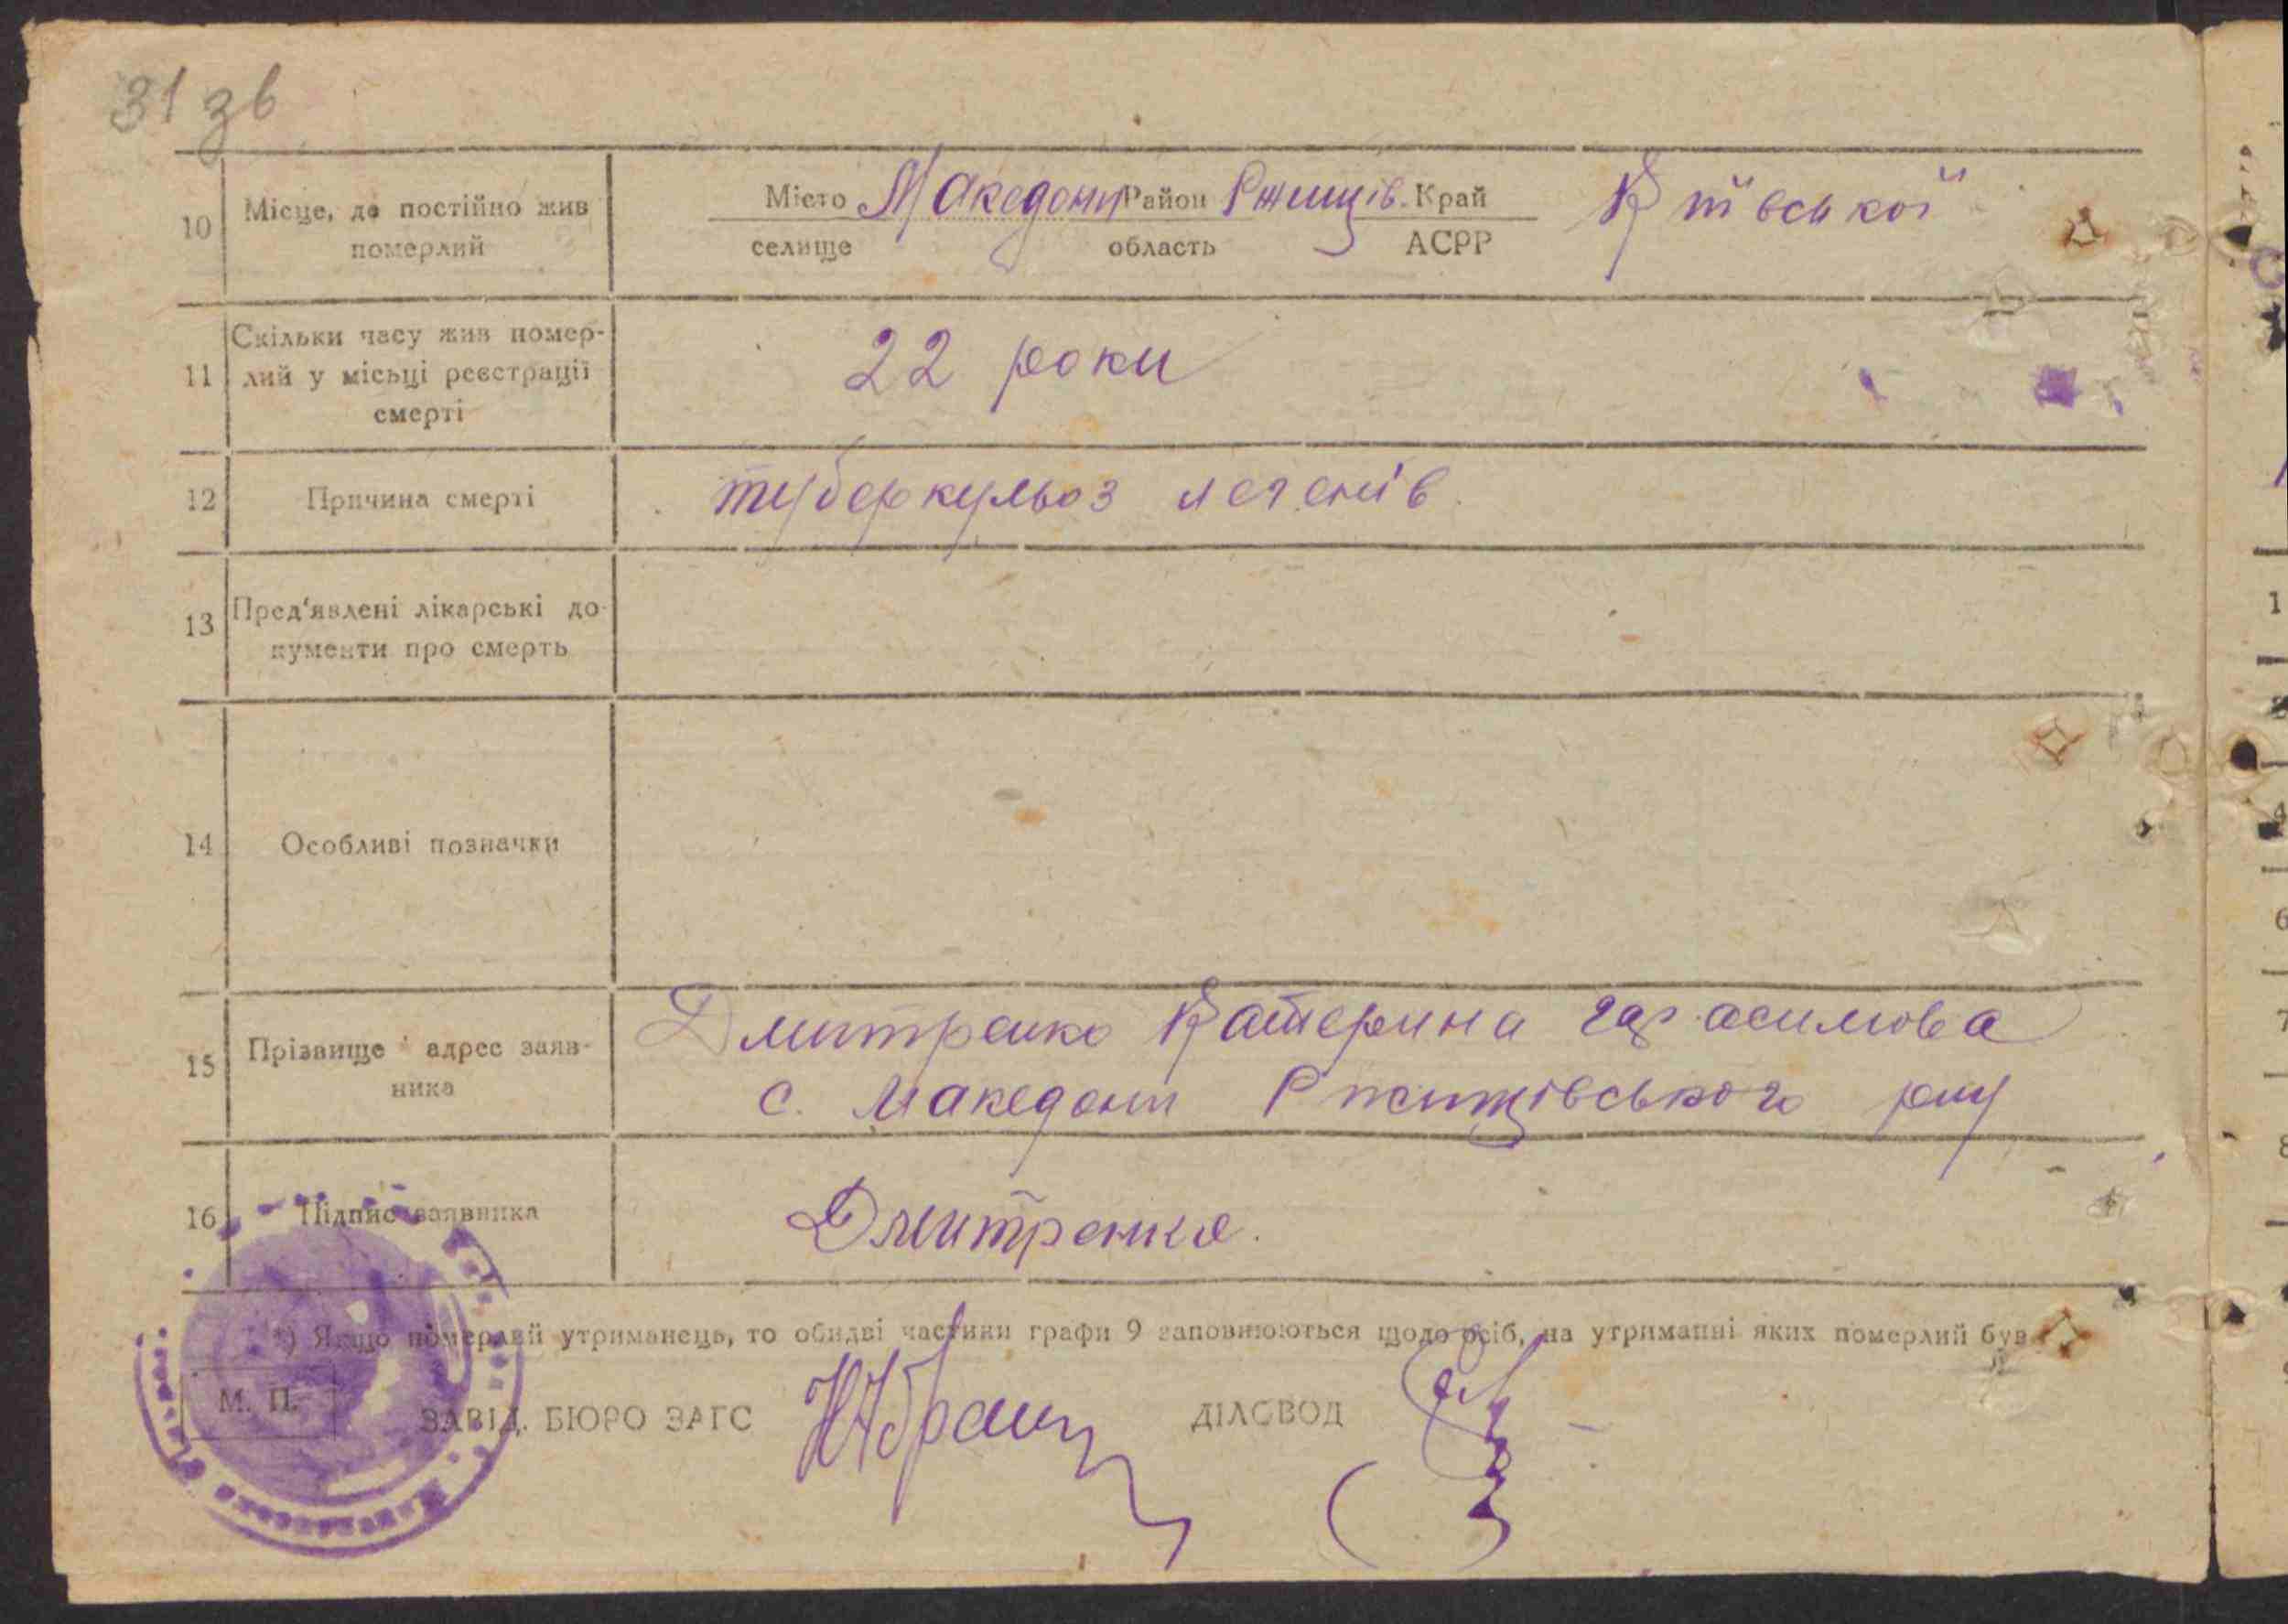 31 зв
10 Місце, де постійно жив померлий
Місто Македони Район Ржищів. Край Київської
селище область АСРР
11 Скільки часу жив помер-
лий у місьці реєстрації
смерті
22 роки
12 Причина смерті туберкульоз легенів.
13 Пред'явлені лікарські до-
кументи про смерть
14 Особливі позначки
15 Прізвище адрес заяв-
ника
Дмитренко Катерина Гарасимова
с. Македони Ржищівського р-ну
16 Підпис заявника Дмитренко.
*) Якщо померлий утриманець, то обидві частини графи 9 заповнюються щодо осіб, на утриманні яких померлий був
М. П.
ЗАВІД. БЮРО ЗАГС ДІЛОВОД